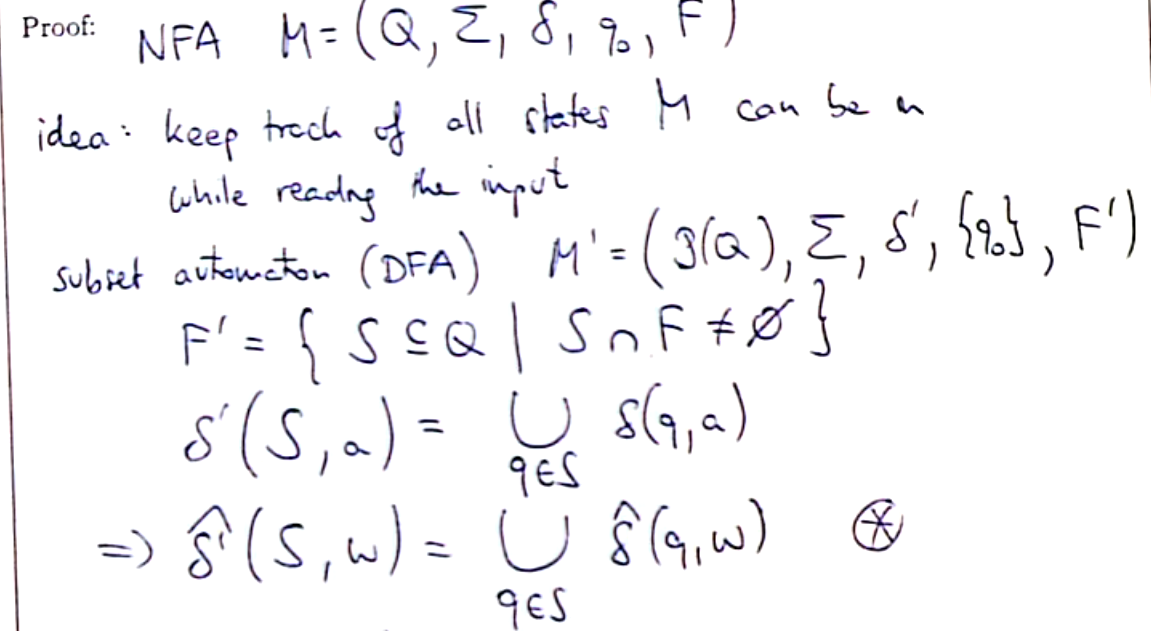 Proof: NFA M = (Q, Σ, δ, q₀, F)
idea: keep track of all states M can be in
while reading the input
subset automaton (DFA) M' = (𝒫(Q), Σ, δ', {q₀}, F')
F' = { S ⊆ Q | S ∩ F ≠ ∅ }
δ'(S, a) = ⋃ δ(q, a)
q∈S
=> δ̂'(S, w) = ⋃ δ̂(q, w) ⊛
q∈S